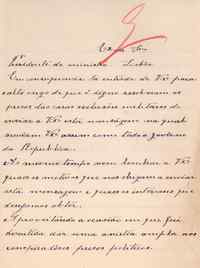 Exmo Snr
Presidente do ministro Lisboa
Em consequencia da entrada de V. Exa para
o alto cargo de que é digno resolveram os
presos das casas reclusões militares de
enviar a V. Exa esta mensagem na qual
saudam V. Exa assim como todo o governo
da Republica.
Ao mesmo tempo vem lembrar a V. Exa
quaes os motivos que nos obrigam a enviar
esta mensagem e quaes os intéresses que
desejamos obter.
Aproveitando a occasião em que foi
dar uma amnistia ampla aos
conspiradores presos politicos.